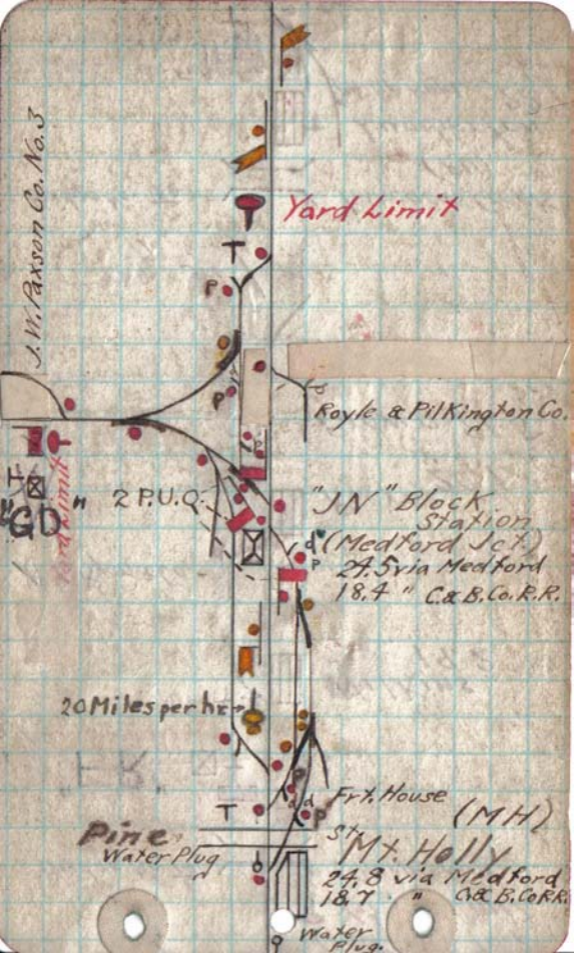 J.W. Paxson Co. No. 3
Yard Limit
T
P
P
Royle & Pilkington Co.
P
Yard Limit
"GD"
2 P.U.Q.
"JN" Block
Station
(Medford Jct.)
d
P
24.5 via Medford
18.4 " C. & B. Co. R.R.
20 Miles per hr
P
d
P
Frt. House
T
(MH)
Pine
St.
Water Plug
Mt. Holly
24.8 via Medford
18.7 " C. & B. Co. R.R.
Water
Plug.